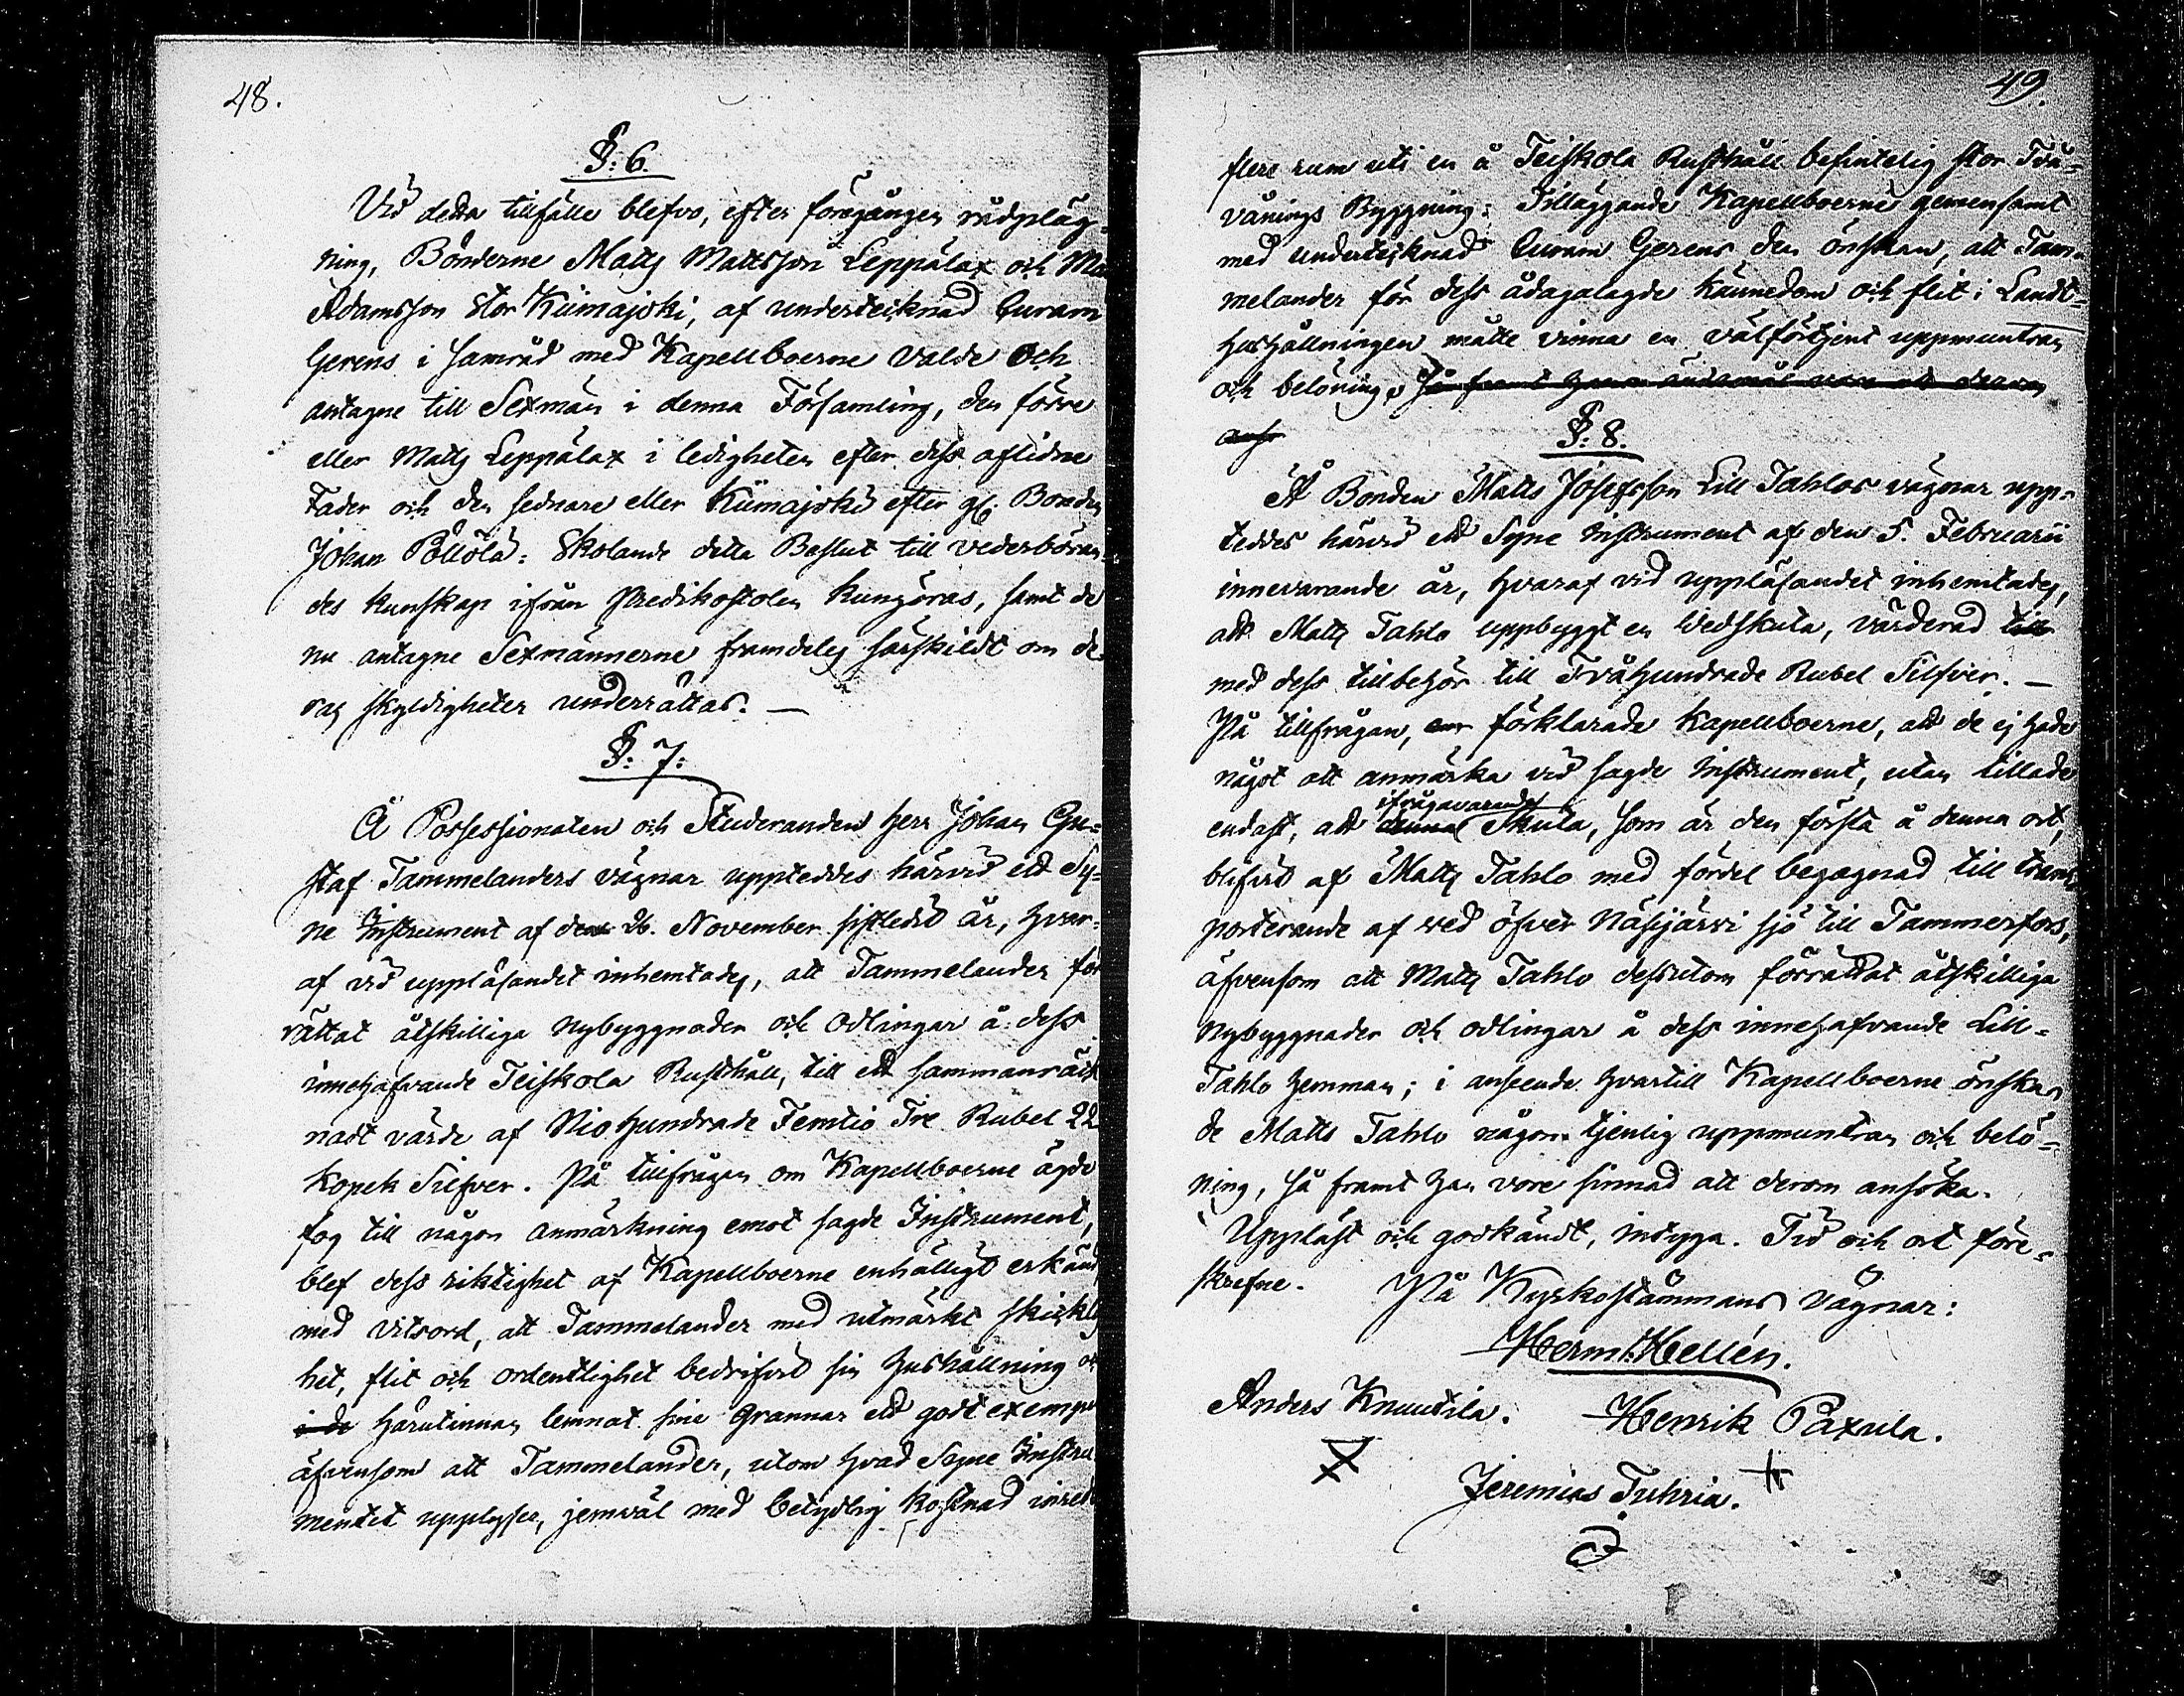 48.
§: 6.
Vid detta tillfälle blefvo, efter föregången rådpläg-
ning, Bönderne Matts Mattsson Leppälax och Ma
Adamsson Stor Kiimajoki, af undertecknad Curam
Gerens i samråd med Kapellboerne valde och
antagne till Sexmän i denna Församling, den förre
eller Matts Leppälax i ledigheten efter dess aflidne
Fader och den sednare eller Kiimajoki efter gl. Bonden
Johan Pöllölä: Skolande detta Beslut till vederböran-
des kunskap ifrån Predikostolen kungöras, samt de
nu antagne Sexmännerne framdeles särskildt om de-
ras skyldigheter underrättas. —
§: 7:
Å Possessionaten och Studeranden Herr Johan Gu-
staf Tammelanders vägnar uppteddes härvid ett Sy-
ne Instrument af den 26. November sistledit år, hvar-
af vid uppläsandet inhemtades, att Tammelander för
rättat åtskilliga nybyggnader och Odlingar å dess
innehafvande Teiskola Rusthåll, till ett sammanräk
nadt värde af Niohundrade Femtio Tre Rubel 22
kopek Silfver. På tillfrågan om Kapellboerne ägde
fog till någon anmärkning emot sagde Instrument,
blef dess riktighet af Kapellboerne enhälligt erkänd
med vitsord, att Tammelander med utmärkt skicklig
het, flit och ordentlighet bedrifvit sin hushållning oc
i de härutinnan lemnat sine Grannar ett godt exempel
äfvensom att Tammelander, utom hvad Syne Instru
mentet upplyser, jemväl med betydlig kostnad inredt
49.
flere rum uti en å Teiskola Rusthåll befintelig stor Två-
vånings Byggning: Tilläggande Kapellboerne gemensamt
med undertecknad Curam Gerens den önskan, att Tam-
melander för dess ådagalagde kännedom och flit i Landt-
hushållningen måtte vinna en välförtjent uppmuntran
och belöning, så framt hans ändamål vore att derom
anso
§: 8.
Å Bonden Matts Josefsson Lill Tahlos vägnar upp-
teddes härvid ett Syne Instrument af den 5. Februarii
innevarande år, hvaraf vid uppläsandet inhemtades,
att Matts Tahlo uppbyggt en Vedskuta, värderad till
med dess tillbehör till Tvåhundrade Rubel Silfver. —
På tillfrågan, om förklarade Kapellboerne, att de ej hade
något att anmärka vid sagde Instrument, utan tillade
ifrågavarande
endast, att denna Skuta, som är den första å denna ort,
blifvit af Matts Tahlo med fördel begagnad till trans
porterande af ved öfver Näsijärvi sjö till Tammerfors,
äfvensom att Matts Tahlo dessutom förrättat åtskilliga
Nybyggnader och odlingar å dess innehafvande Lill-
Tahlo hemman; i anseende hvartill Kapellboerne önska-
de Matts Tahlo någon tjenlig uppmuntran och belö-
ning, så framt han vore sinnad att derom ansöka.
Uppläst och godkändt, intyga. Tid och ort före-
skrefne. På Kyrkostämmans vägnar:
Herm: Hellén.
Anders Knuutila. Henrik Paxula.
Jeremias Tuhria.